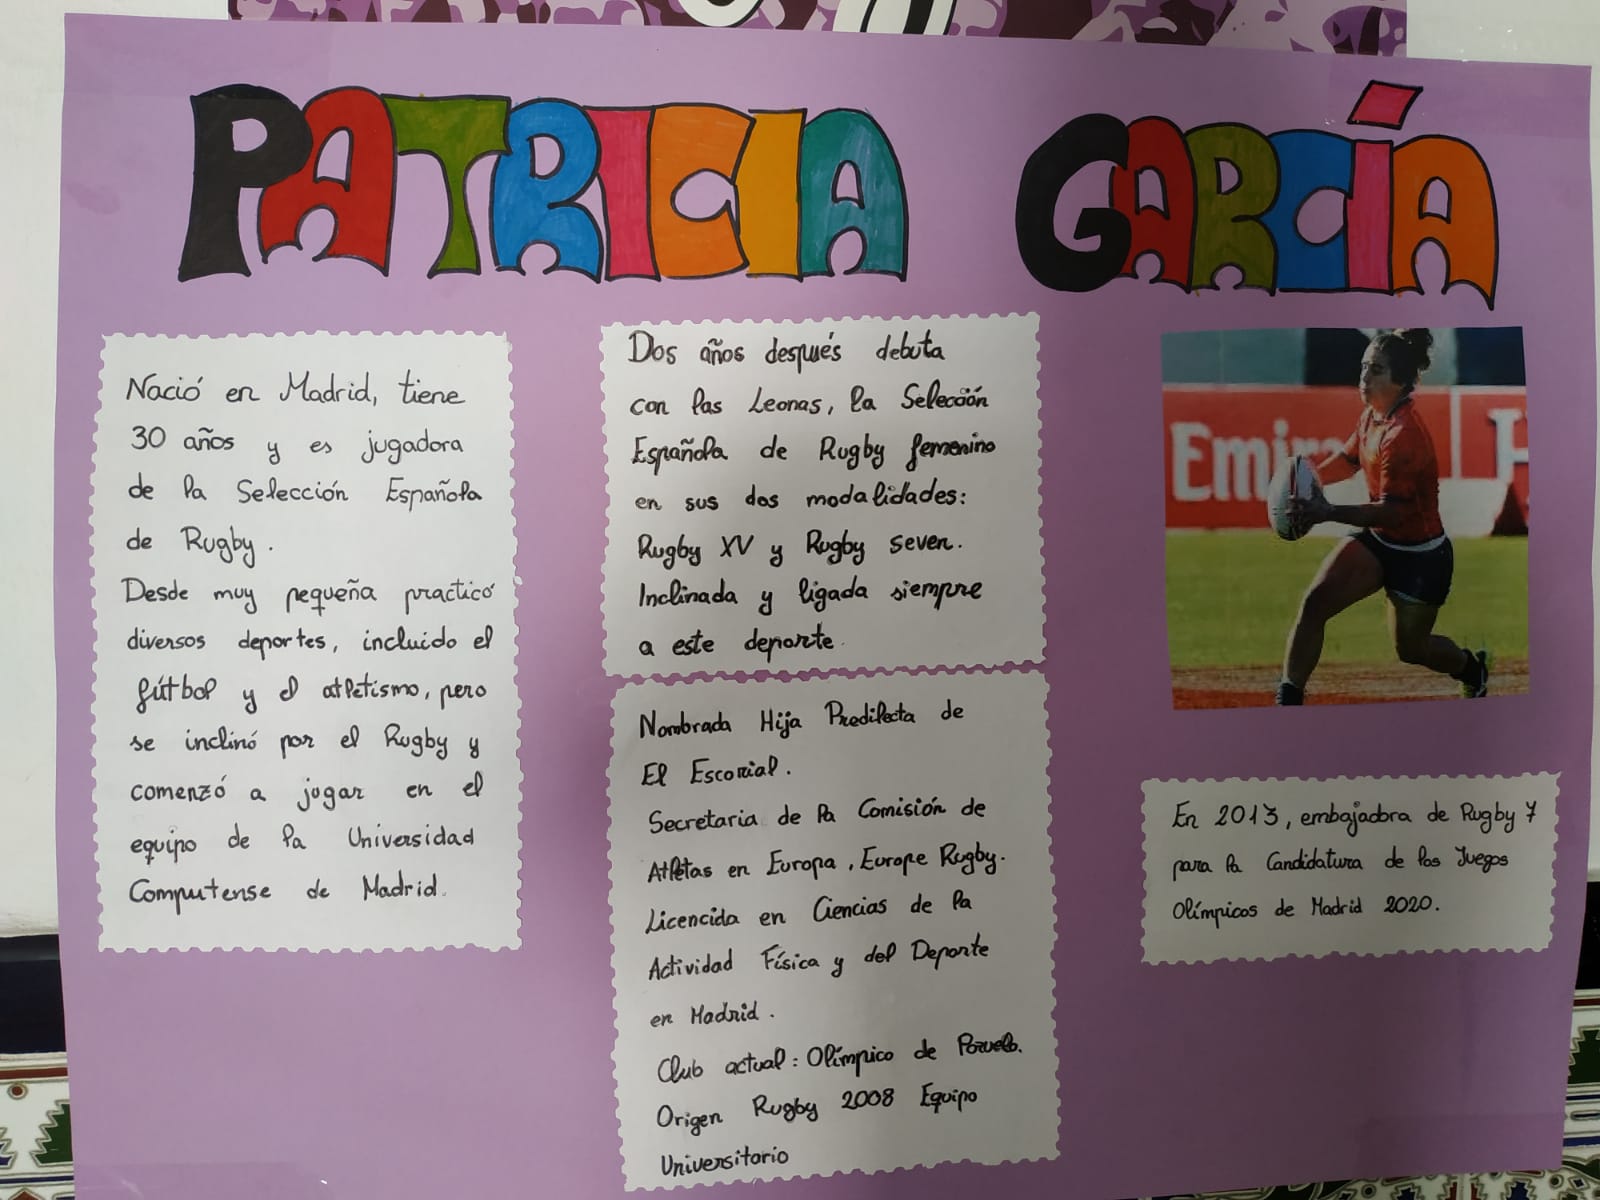 PATRICIA GARCÍA
Nació en Madrid, tiene
30 años y es jugadora
de la Selección Española
de Rugby.
Desde muy pequeña practicó
diversos deportes, incluido el
fútbol y el atletismo, pero
se inclinó por el Rugby y
comenzó a jugar en el
equipo de la Universidad
Complutense de Madrid.
Dos años después debuta
con las Leonas, la Selección
Española de Rugby femenino
en sus dos modalidades:
Rugby XV y Rugby seven.
Inclinada y ligada siempre
a este deporte.
Nombrada Hija Predilecta de
El Escorial.
Secretaria de la Comisión de
Atletas en Europa, Europe Rugby.
Licencida en Ciencias de la
Actividad Física y del Deporte
en Madrid.
Club actual: Olímpico de
Origen Rugby 2008 Equipo
Universitario
Emir
En 2013, embajadora de Rugby 7
para la Candidatura de los Juegos
Olímpicos de Madrid 2020.